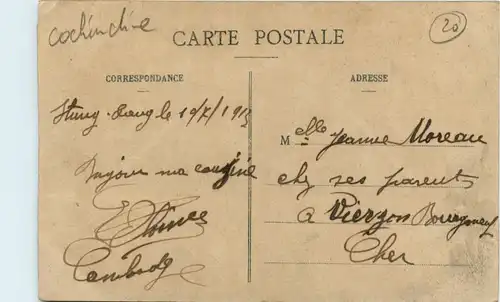 cochinchine
20
CARTE POSTALE
CORRESPONDANCE
ADRESSE
Stung-Treng le 19/X/1913
Bonjour ma cousine
Cambodge
Melle Jeanne Moreau
chez ses parents
a Vierzon Bourgneuf
Cher